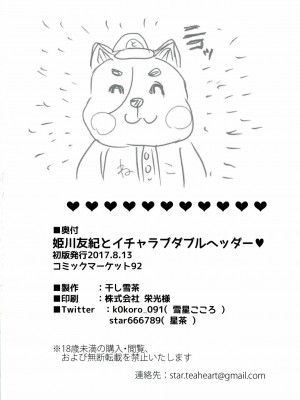 ニコッ
ねこ
♥♥♥♥♥♥♥♥♥♥♥♥
■奥付
姫川友紀とイチャラブダブルヘッダー♥
初版発行2017.8.13
コミックマーケット92
■製作　：干し雪茶
■印刷　：株式会社 栄光様
■Twitter　：k0koro_091( 雪星こころ )
star666789( 星茶 )
※18歳未満の購入・閲覧、
および無断転載を禁止いたします
連絡先：star.teaheart@gmail.com